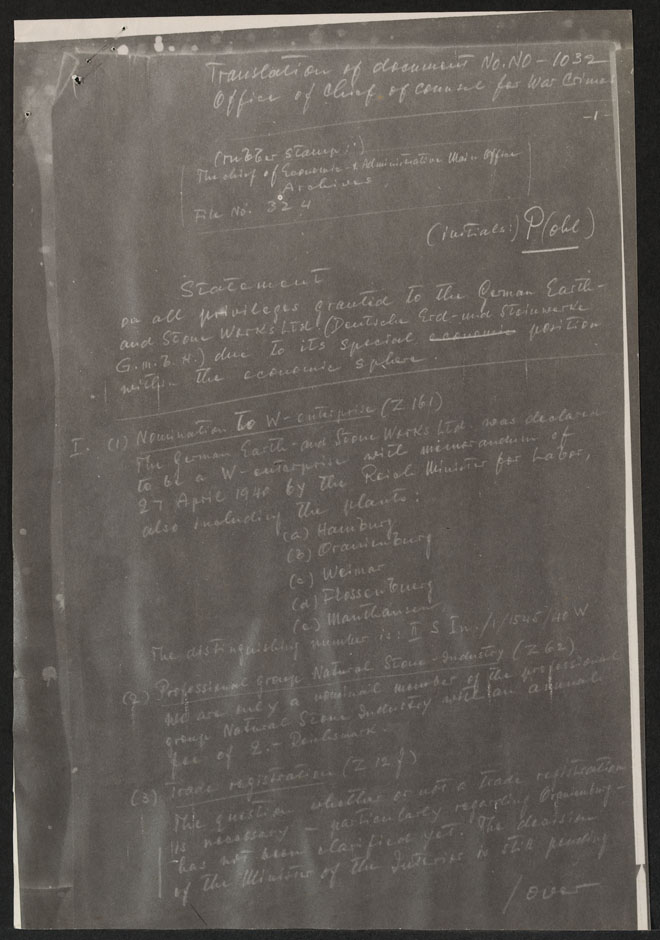 Translation of document No. NO-1032
Office of Chief of Counsel for War Crimes
-1-
(rubber stamp:)
The chief of Economic & Administrative Main Office
Archives
File No. 324
(initials:) P(ohl)
Statement
on all privileges granted to the German Earth-
and Stone Works Ltd (Deutsche Erd-und Steinwerke
G.m.b.H.) due to its special economic position
within the economic sphere.
I. (1) Nomination to W-enterprise (Z 161)
The German Earth-and Stone Works Ltd. was declared
to be a W-enterprise with memorandum of
27 April 1940 by the Reich Minister for Labor,
also including the plants:
(a) Hamburg
(b) Oranienburg
(c) Weimar
(d) Flossenbuerg
(e) Mauthausen
The distinguishing number is: II S In./1/1545/40 W
(2) Professional group Natural Stone-Industry (Z 62)
We are only a nominal member of the professional
group Natural Stone Industry with an annual
fee of 2.- Reichsmark.
(3) Trade registration (Z 12 f)
The question whether or not a trade registration
is necessary - particularly regarding Oranienburg -
has not been clarified yet. The decision
of the Minister of the Interior is still pending
/over